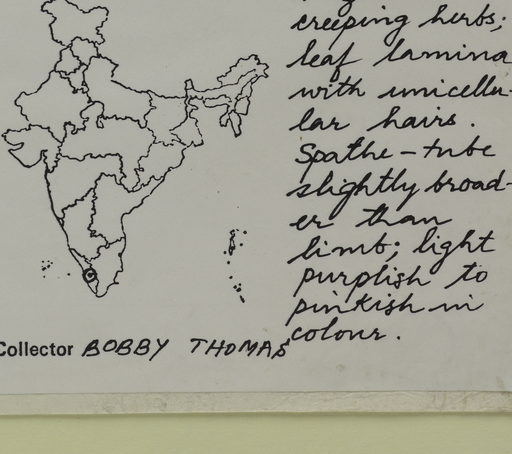 creeping herbs;
leaf lamina
with unicellu-
lar hairs.
Spathe-tube
slightly broad-
er than
limb; light
purplish to
pinkish in
colour.
Collector BOBBY THOMAS